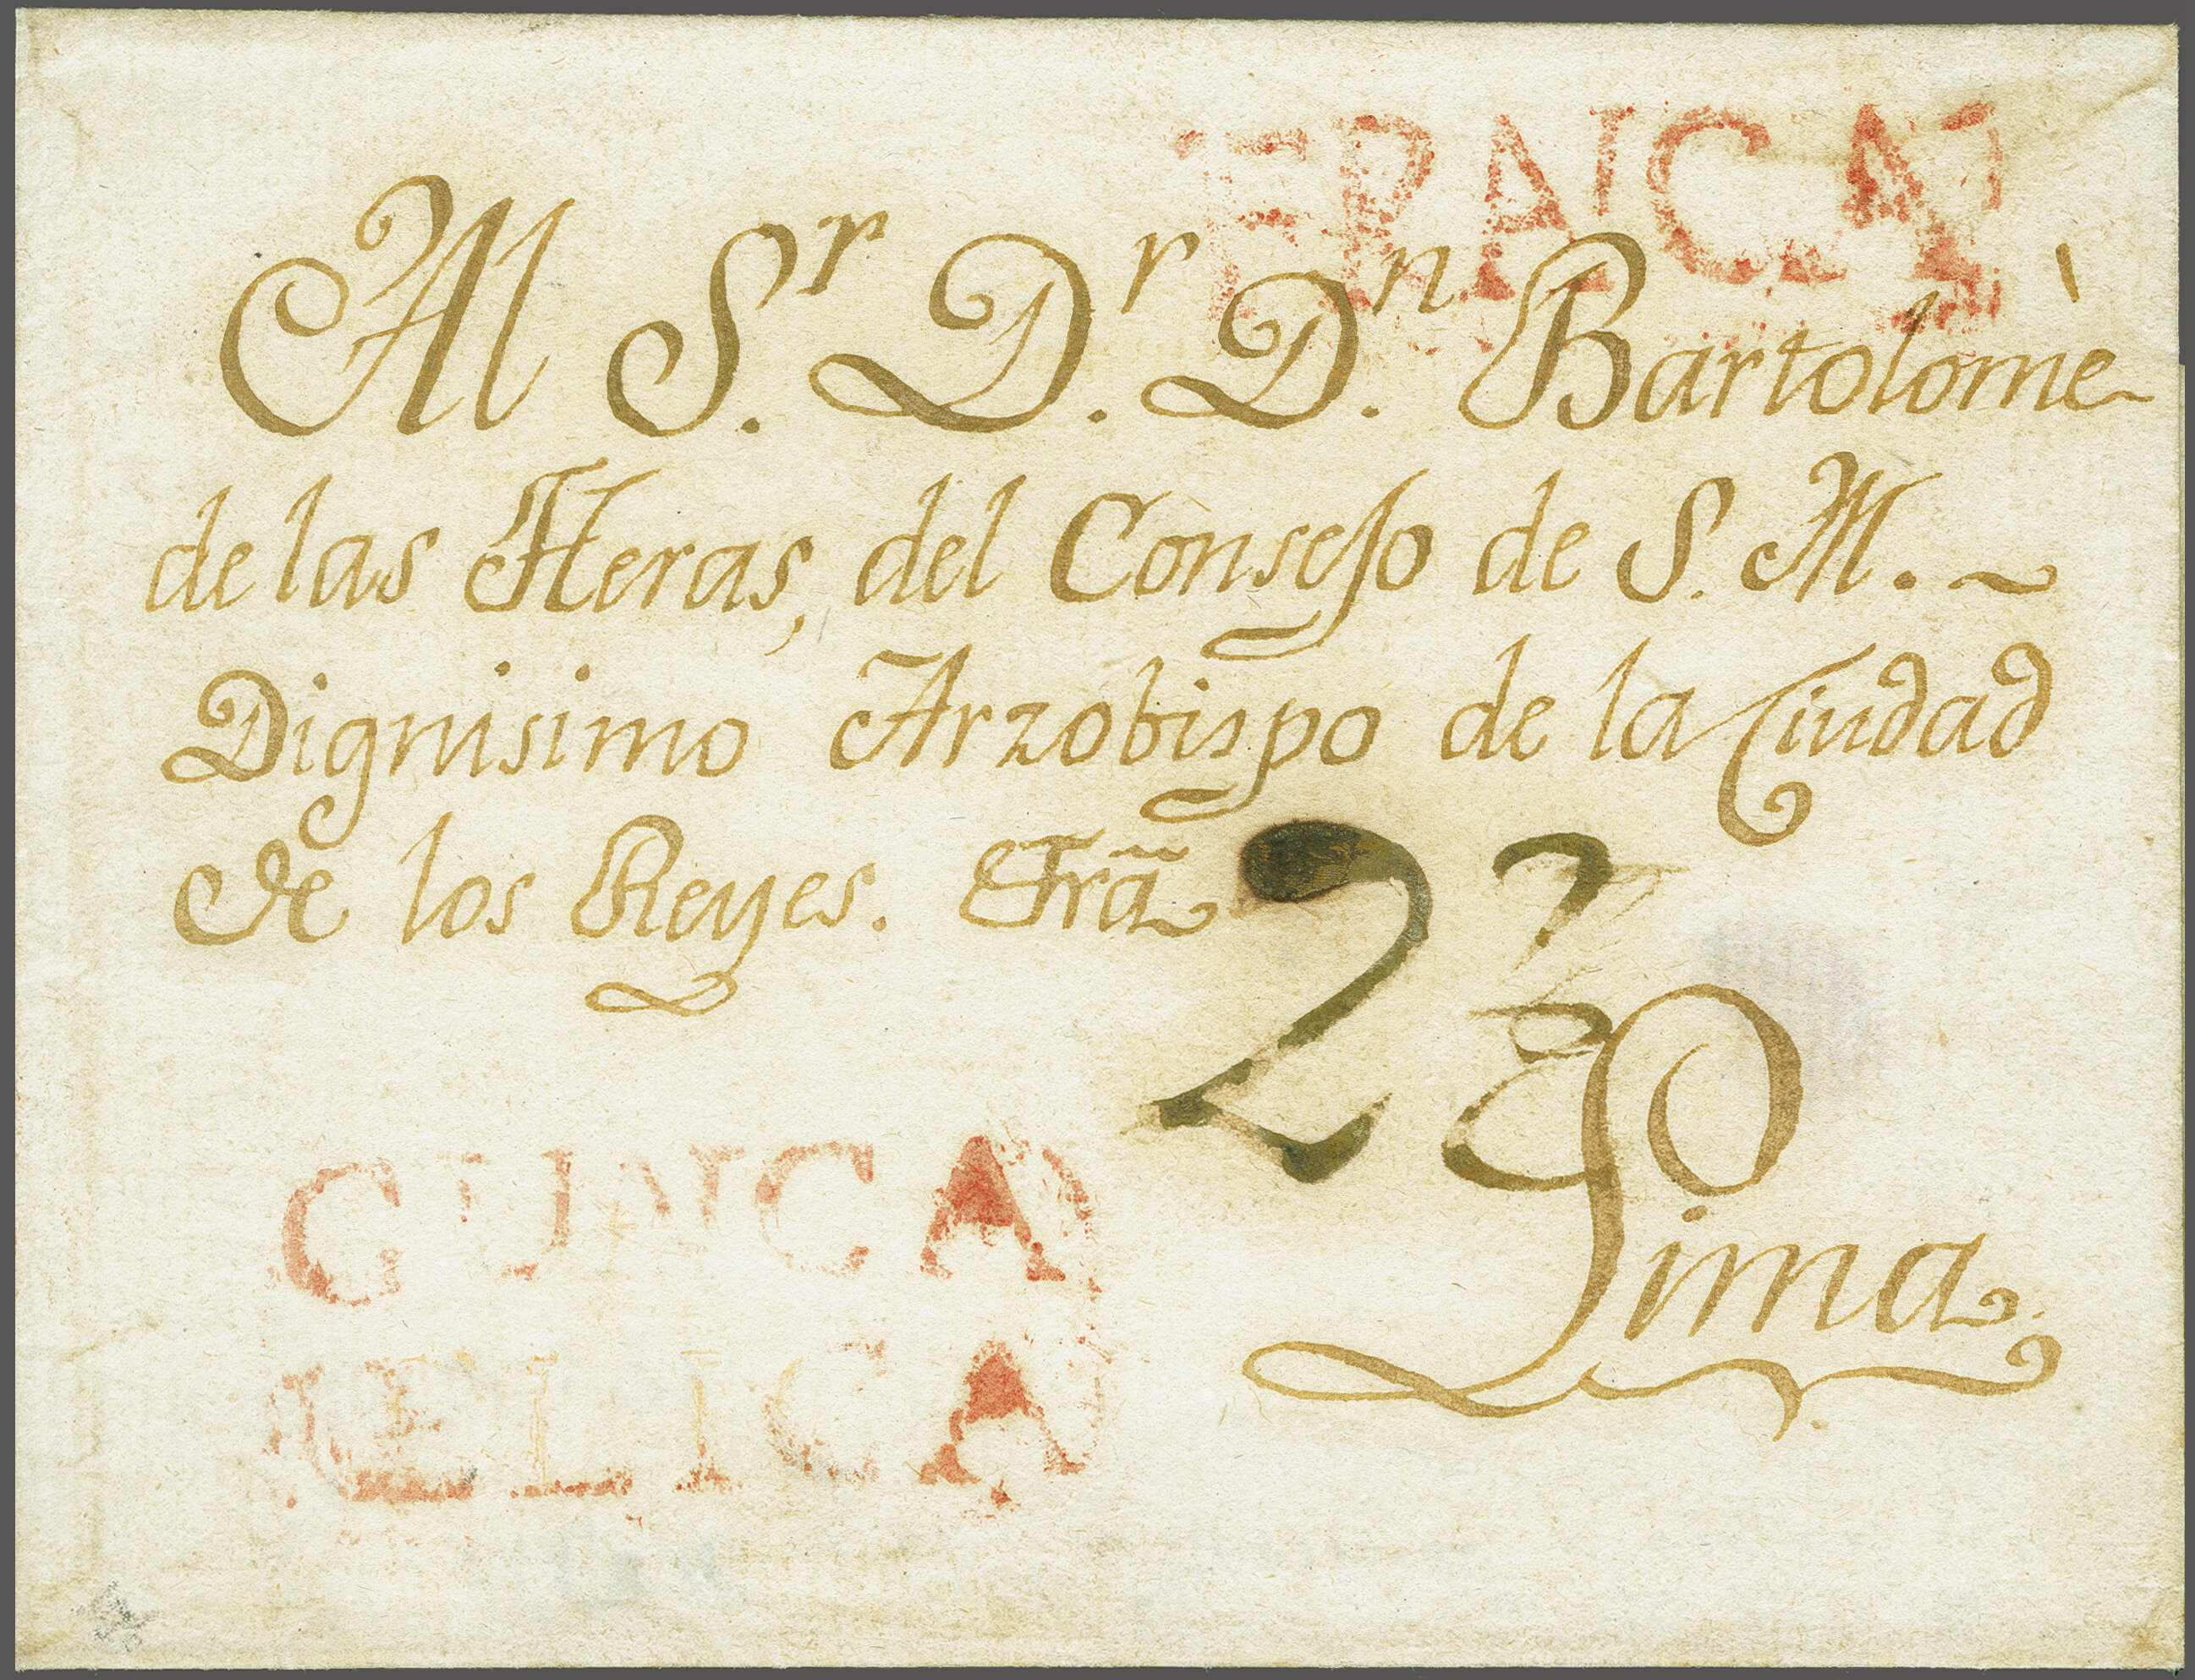 FRNCA
Al S.r D.r D.n Bartolomè
de las Heras, del Consejo de S. M.
Dignisimo Arzobispo de la Ciudad
de los Reyes. Frã
2
Lima
GUNCA
ELICA